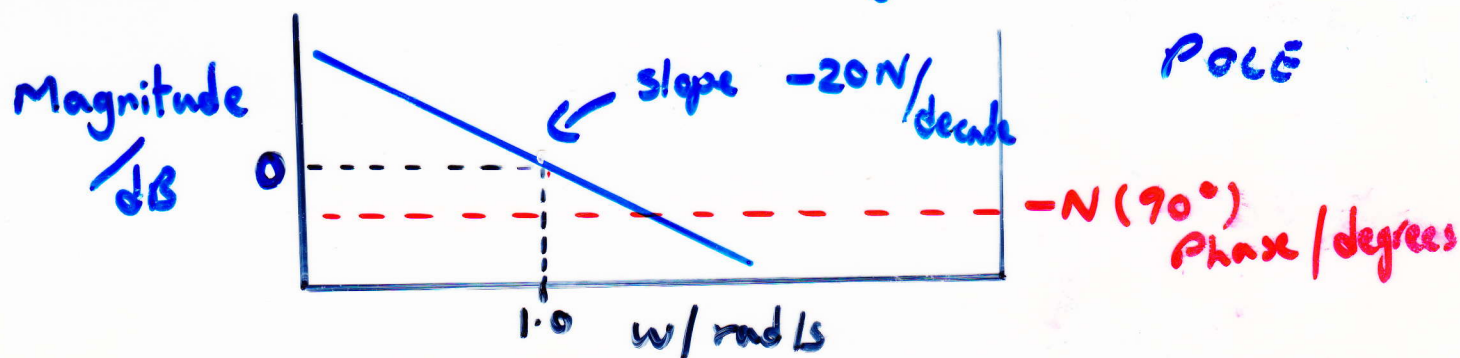 POLE
Magnitude
/dB
slope -20N/decade
0
-N(90°)
Phase/degrees
1.0
w/rad/s